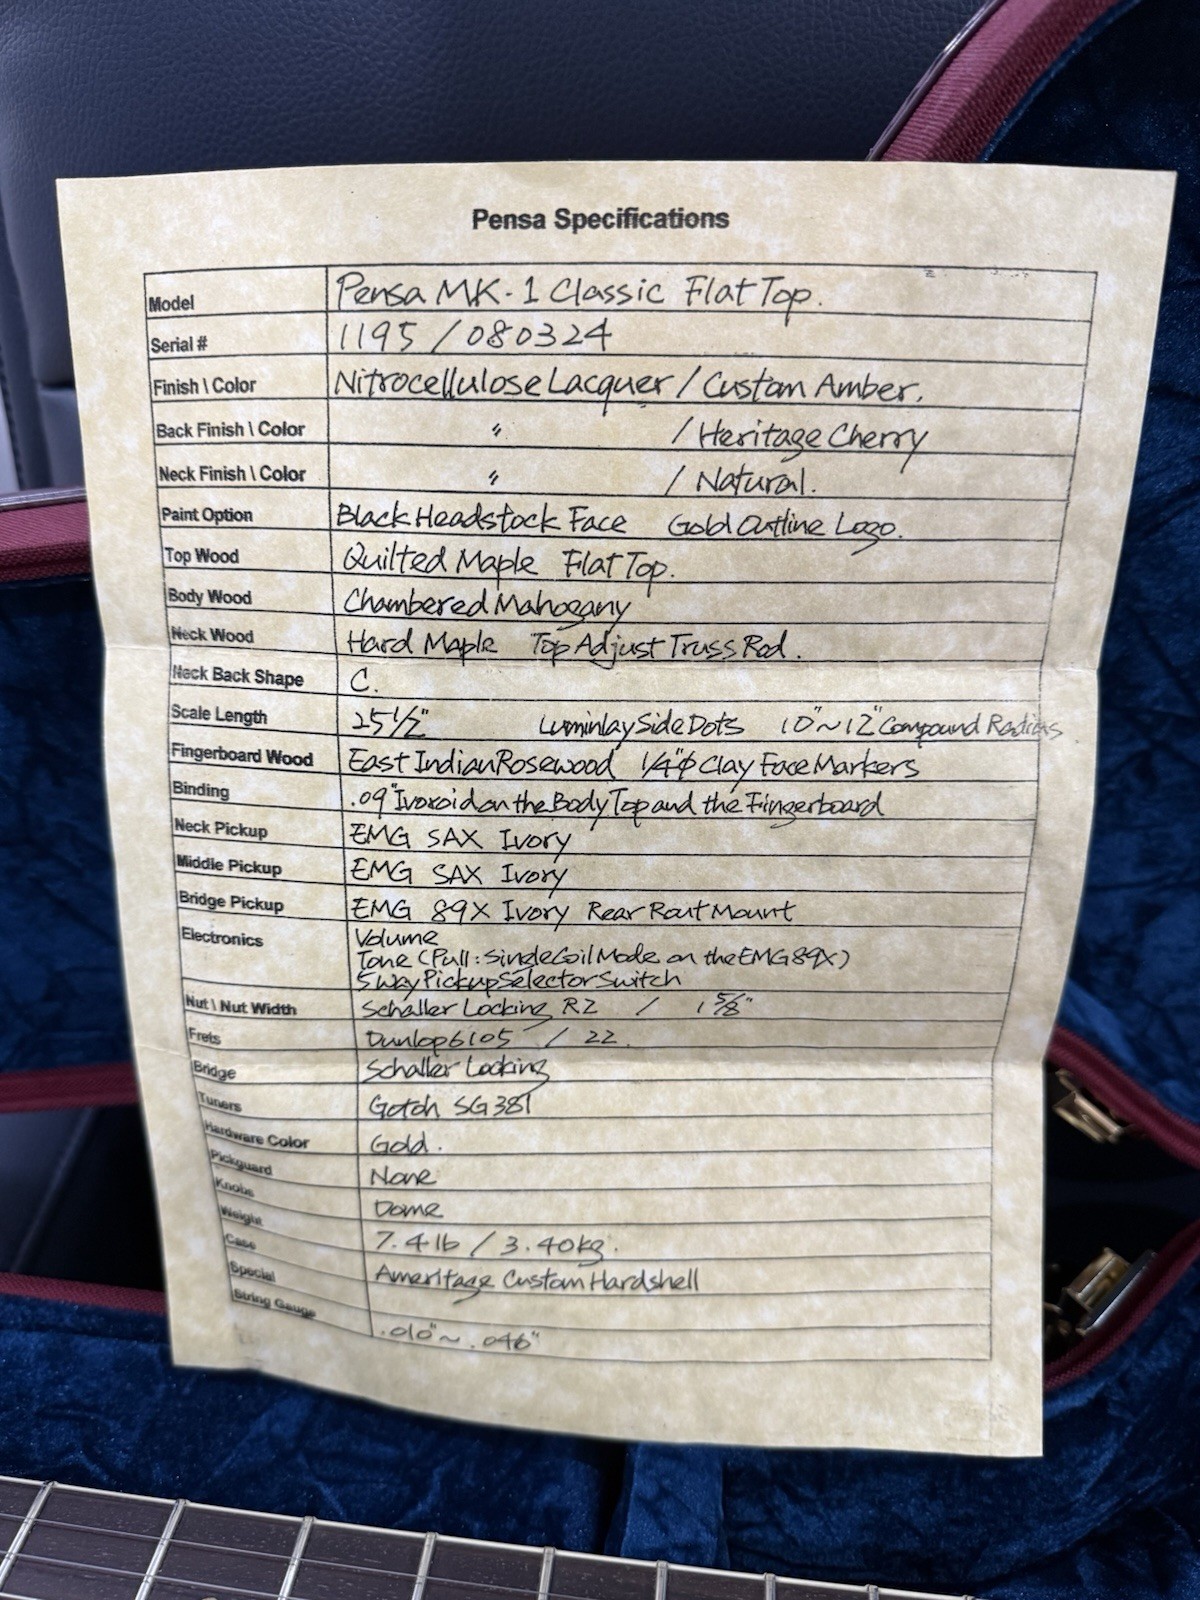 Pensa Specifications
Model Pensa MK-1 Classic Flat Top.
Serial # 1195 / 080324
Finish \ Color Nitrocellulose Lacquer / Custom Amber.
Back Finish \ Color 〃 / Heritage Cherry
Neck Finish \ Color 〃 / Natural.
Paint Option Black Headstock Face Gold Outline Logo.
Top Wood Quilted Maple Flat Top.
Body Wood Chambered Mahogany
Neck Wood Hard Maple Top Adjust Truss Rod.
Neck Back Shape C.
Scale Length 25 1/2" Luminlay Side Dots 10"~12" Compound Radius
Fingerboard Wood East Indian Rosewood 1/4"φ Clay Face Markers
Binding .09" Ivoroid on the Body Top and the Fingerboard
Neck Pickup EMG SAX Ivory
Middle Pickup EMG SAX Ivory
Bridge Pickup EMG 89X Ivory Rear Rout Mount
Electronics Volume
Tone (Pull: Single Coil Mode on the EMG 89X)
5 way Pickup Selector Switch
Nut \ Nut Width Schaller Locking R2 / 1 5/8"
Frets Dunlop 6105 / 22.
Bridge Schaller Locking
Tuners Gotoh SG381
Hardware Color Gold.
Pickguard None
Knobs Dome
Weight 7.4 lb / 3.40 kg.
Case Ameritage Custom Hardshell
Special
String Gauge .010"~.046"